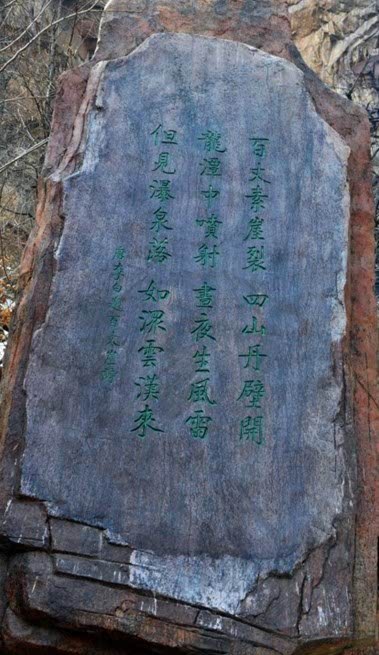 百丈素崖裂 四山丹壁開
龍潭中噴射 晝夜生風雷
但見瀑泉落 如深雲漢來
唐李白